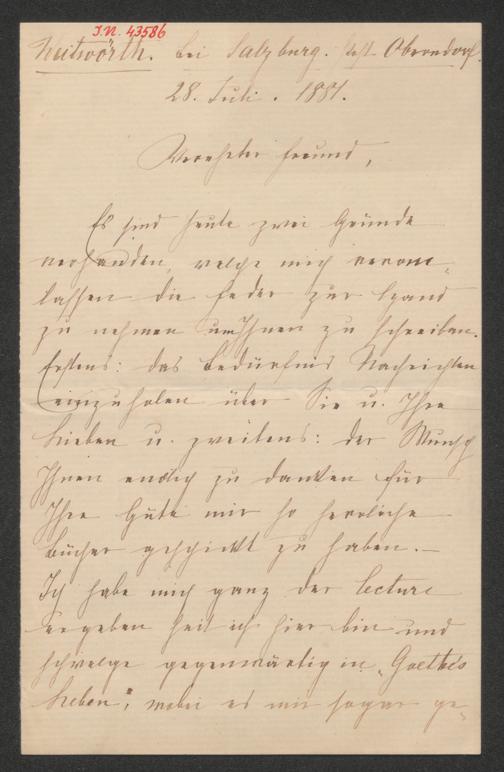 I.N. 43586
Weitwörth. bei Salzburg. Post Oberndorf.
28. Juli. 1881.
Verehrter Freund,
Es sind heute zwei Gründe
vorhanden, welche mich veran-
lassen die Feder zur Hand
zu nehmen um Ihnen zu schreiben.
Erstens: das Bedürfnis Nachrichten
einzuholen über Sie u. Ihre
Lieben u. zweitens: der Wunsch
Ihnen endlich zu danken für
Ihre Güte mir so herrliche
Bücher geschickt zu haben. —
Ich habe mich ganz der lecture
ergeben seit ich hier bin und
schwelge gegenwärtig in „Goethe's
Leben", wobei es mir sogar ge-